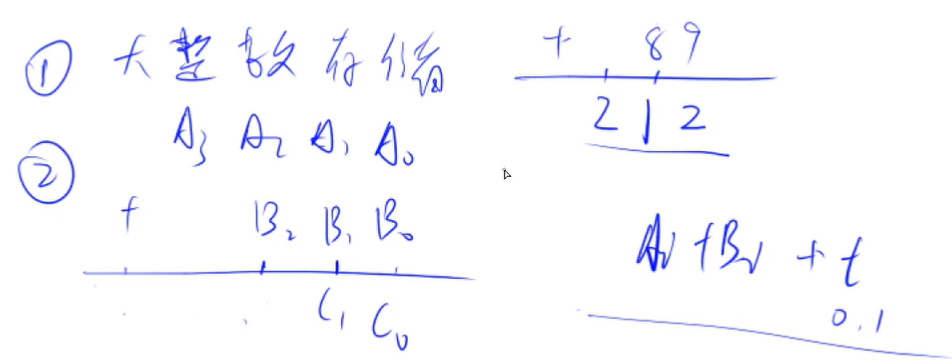 ① 大整数存储
A₃ A₂ A₁ A₀
②
+ B₂ B₁ B₀
C₁ C₀
+ 89
212
Aᵢ+Bᵢ+t
0.1